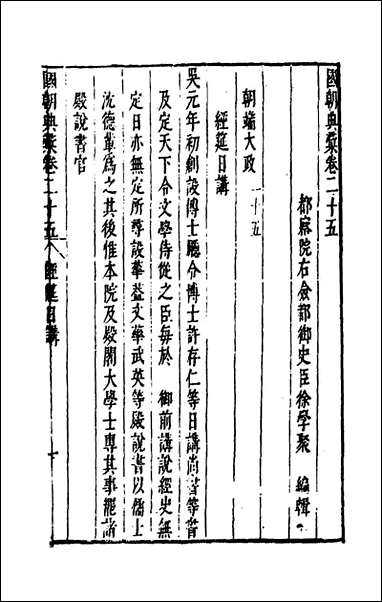 國朝典彙卷二十五
都察院右僉都御史臣徐學聚 編輯
朝端大政 二十五
經筵日講
吳元年初創設博士廳令博士許存仁等日講尚書等書
及定天下令文學侍從之臣每於 御前講說經史無
定日亦無定所尋設華蓋文華武英等殿說書以儒士
沈德輩為之其後惟本院及殿閣大學士專其事罷諸
殿說書官
國朝典彙卷二十五 經筵日講 一